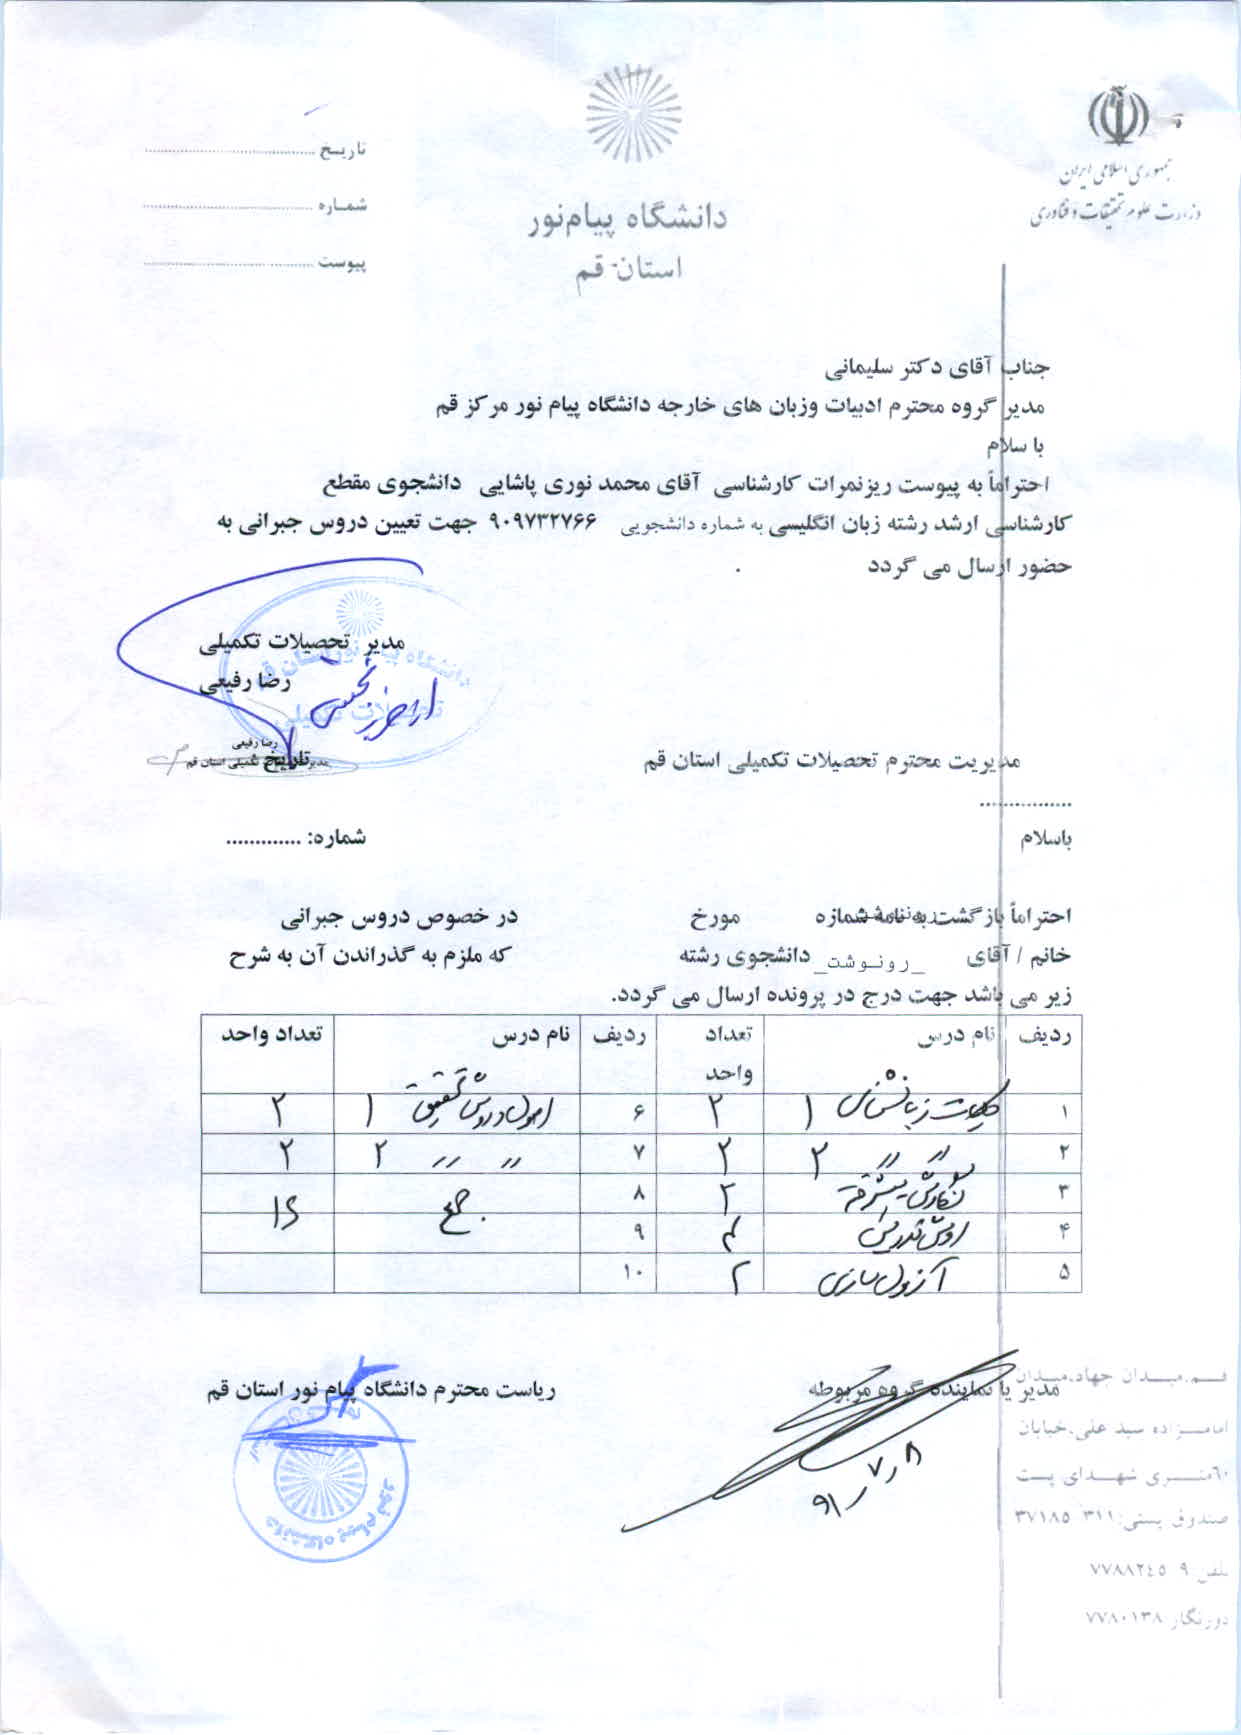 جمهوری اسلامی ایران
وزارت علوم تحقیقات و فناوری
دانشگاه پیام‌نور
استان قم
تاریخ ..............................
شماره ..............................
پیوست ..............................
جناب آقای دکتر سلیمانی
مدیر گروه محترم ادبیات وزبان های خارجه دانشگاه پیام نور مرکز قم
با سلام
احتراماً به پیوست ریزنمرات کارشناسی آقای محمد نوری پاشایی دانشجوی مقطع
کارشناسی ارشد رشته زبان انگلیسی به شماره دانشجویی ۹۰۹۷۳۲۷۶۶ جهت تعیین دروس جبرانی به
حضور ارسال می گردد .
مدیر تحصیلات تکمیلی
رضا رفیعی
رضا رفیعی
مدیر تحصیلات تکمیلی استان قم
تاریخ :
مدیریت محترم تحصیلات تکمیلی استان قم
................
باسلام
شماره: .............
احتراماً بازگشت به نامه شماره مورخ در خصوص دروس جبرانی
خانم / آقای _رونوشت_ دانشجوی رشته که ملزم به گذراندن آن به شرح
زیر می باشد جهت درج در پرونده ارسال می گردد.
ردیف نام درس تعداد واحد ردیف نام درس تعداد واحد
۱ کلیات زبانشناسی ۱ ۲ ۶ اصول و روش تحقیق ۱ ۲
۲ 〃 〃 ۲ ۲ ۷ 〃 〃 ۲ ۲
۳ نگارش پیشرفته ۲ ۸ جمع ۱۶
۴ روش تدریس ۴ ۹
۵ آزمون سازی ۲ ۱۰
مدیر یا نماینده گروه مربوطه
۹۱/۷/۸
ریاست محترم دانشگاه پیام نور استان قم
دانشگاه پیام نور
قم.میدان جهاد.میدان
امامزاده سید علی.خیابان
۶۰متری شهدای پست
صندوق پستی:۳۱۱ ۳۷۱۸۵
تلفن ۹ ۷۷۸۸۲٤۵
دورنگار ۷۷۸۰۱۳۸